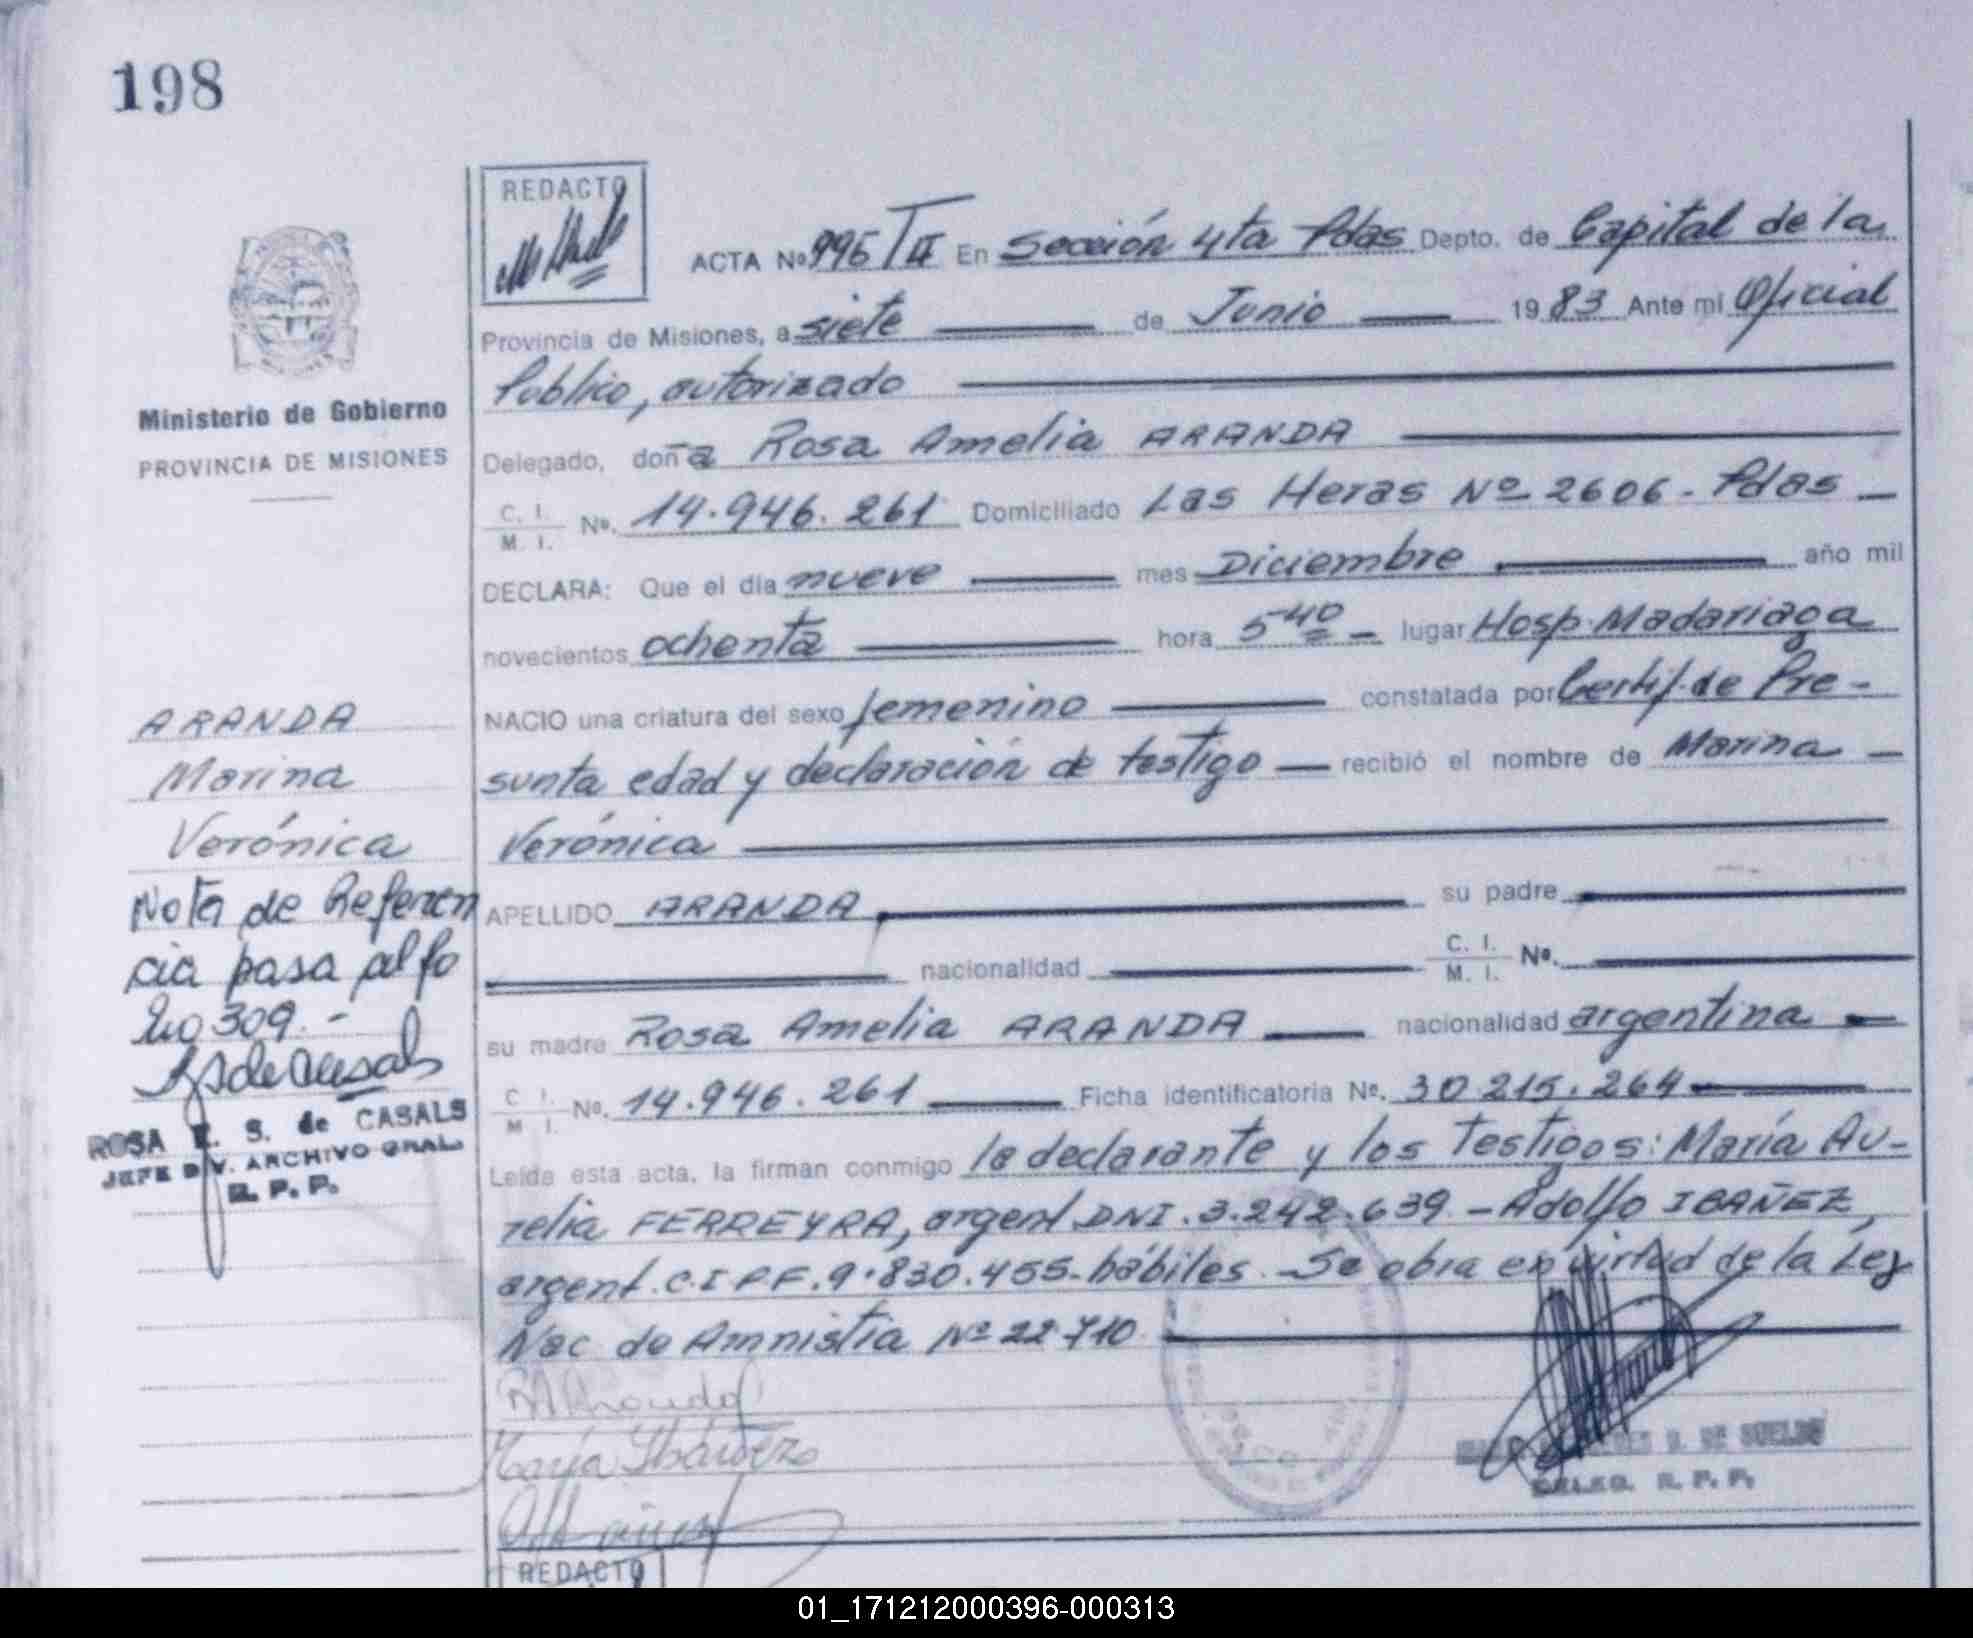 198
REDACTO
ACTA Nº 995/II En Sección 4ta Pdas Depto. de Capital de la
Provincia de Misiones, a siete de Junio 1983 Ante mí Oficial
Publico, autorizado
Ministerio de Gobierno
PROVINCIA DE MISIONES
Delegado, doña Rosa Amelia ARANDA
C. I.
M. I. Nº. 14.946.261 Domiciliado Las Heras Nº 2606 - Pdas
DECLARA: Que el día nueve mes Diciembre año mil
novecientos ochenta hora 5 40 lugar Hosp. Madariaga
NACIO una criatura del sexo femenino constatada por Certif. de Pre-
sunta edad y declaración de testigo recibió el nombre de Marina
Verónica
ARANDA
Marina
Verónica
Nota de Referen
cia pasa al fo
lio 309.-
ROSA E. S. de CASALS
JEFE DIV. ARCHIVO GRAL.
R. P. P.
APELLIDO ARANDA su padre
nacionalidad C. I.
M. I. Nº.
su madre Rosa Amelia ARANDA nacionalidad argentina
C. I.
M. I. Nº. 14.946.261 Ficha identificatoria Nº. 30.215.264
Leída esta acta, la firman conmigo la declarante y los testigos: María Au-
relia FERREYRA, argent. DNI. 3.242.639 - Adolfo IBAÑEZ,
argent. C.I P.F. 9.830.455- hábiles. - Se obra en virtud de la Ley
Nac de Amnistia Nº 22.710
DELEG. R. P. P.
REDACTO
01_171212000396-000313